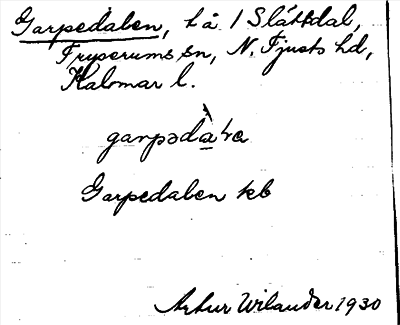 Garpedalen, t å 1 Slättdal,
Fryserums sn, N. Tjusts hd,
Kalmar l.
garpədà
Garpedalen kb
Artur Wilander 1930